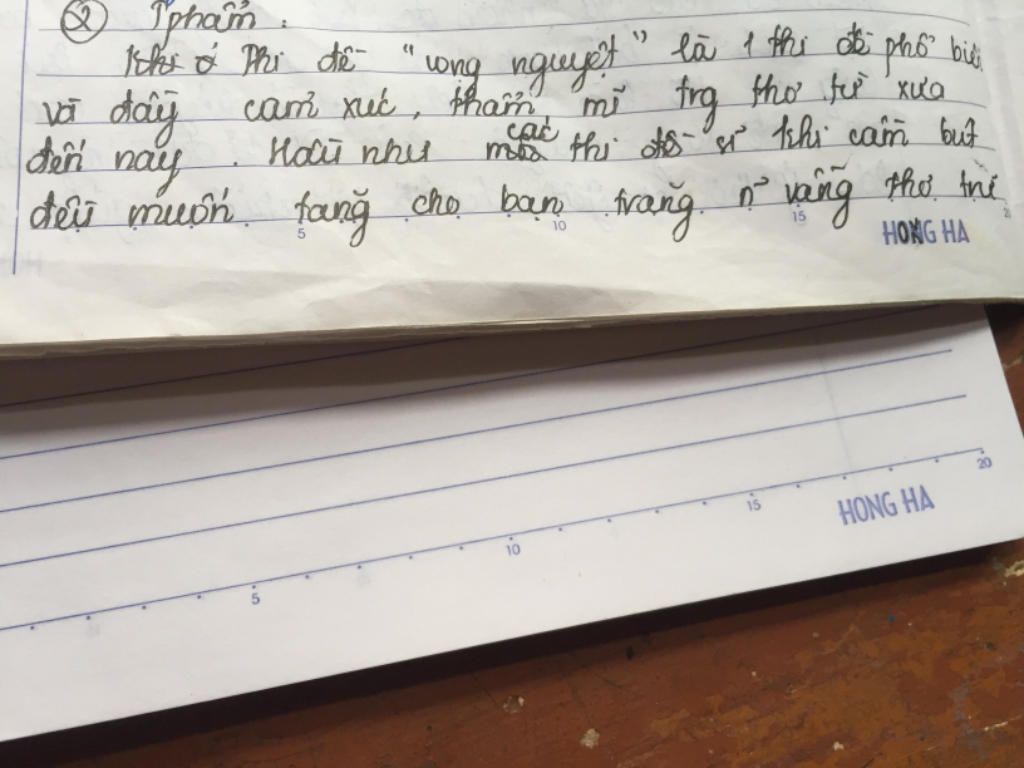 ② Tphẩm :
Thi đề "vọng nguyệt" là 1 thi đề phổ biến
và đầy cảm xúc, thẩm mĩ trg thơ từ xưa
đến nay. Hầu như các thi sĩ khi cầm bút
đều muốn tặng cho bạn trăng n~ vầng thơ trì
5 10 15 2
HONG HA
5 10 15 20
HONG HA